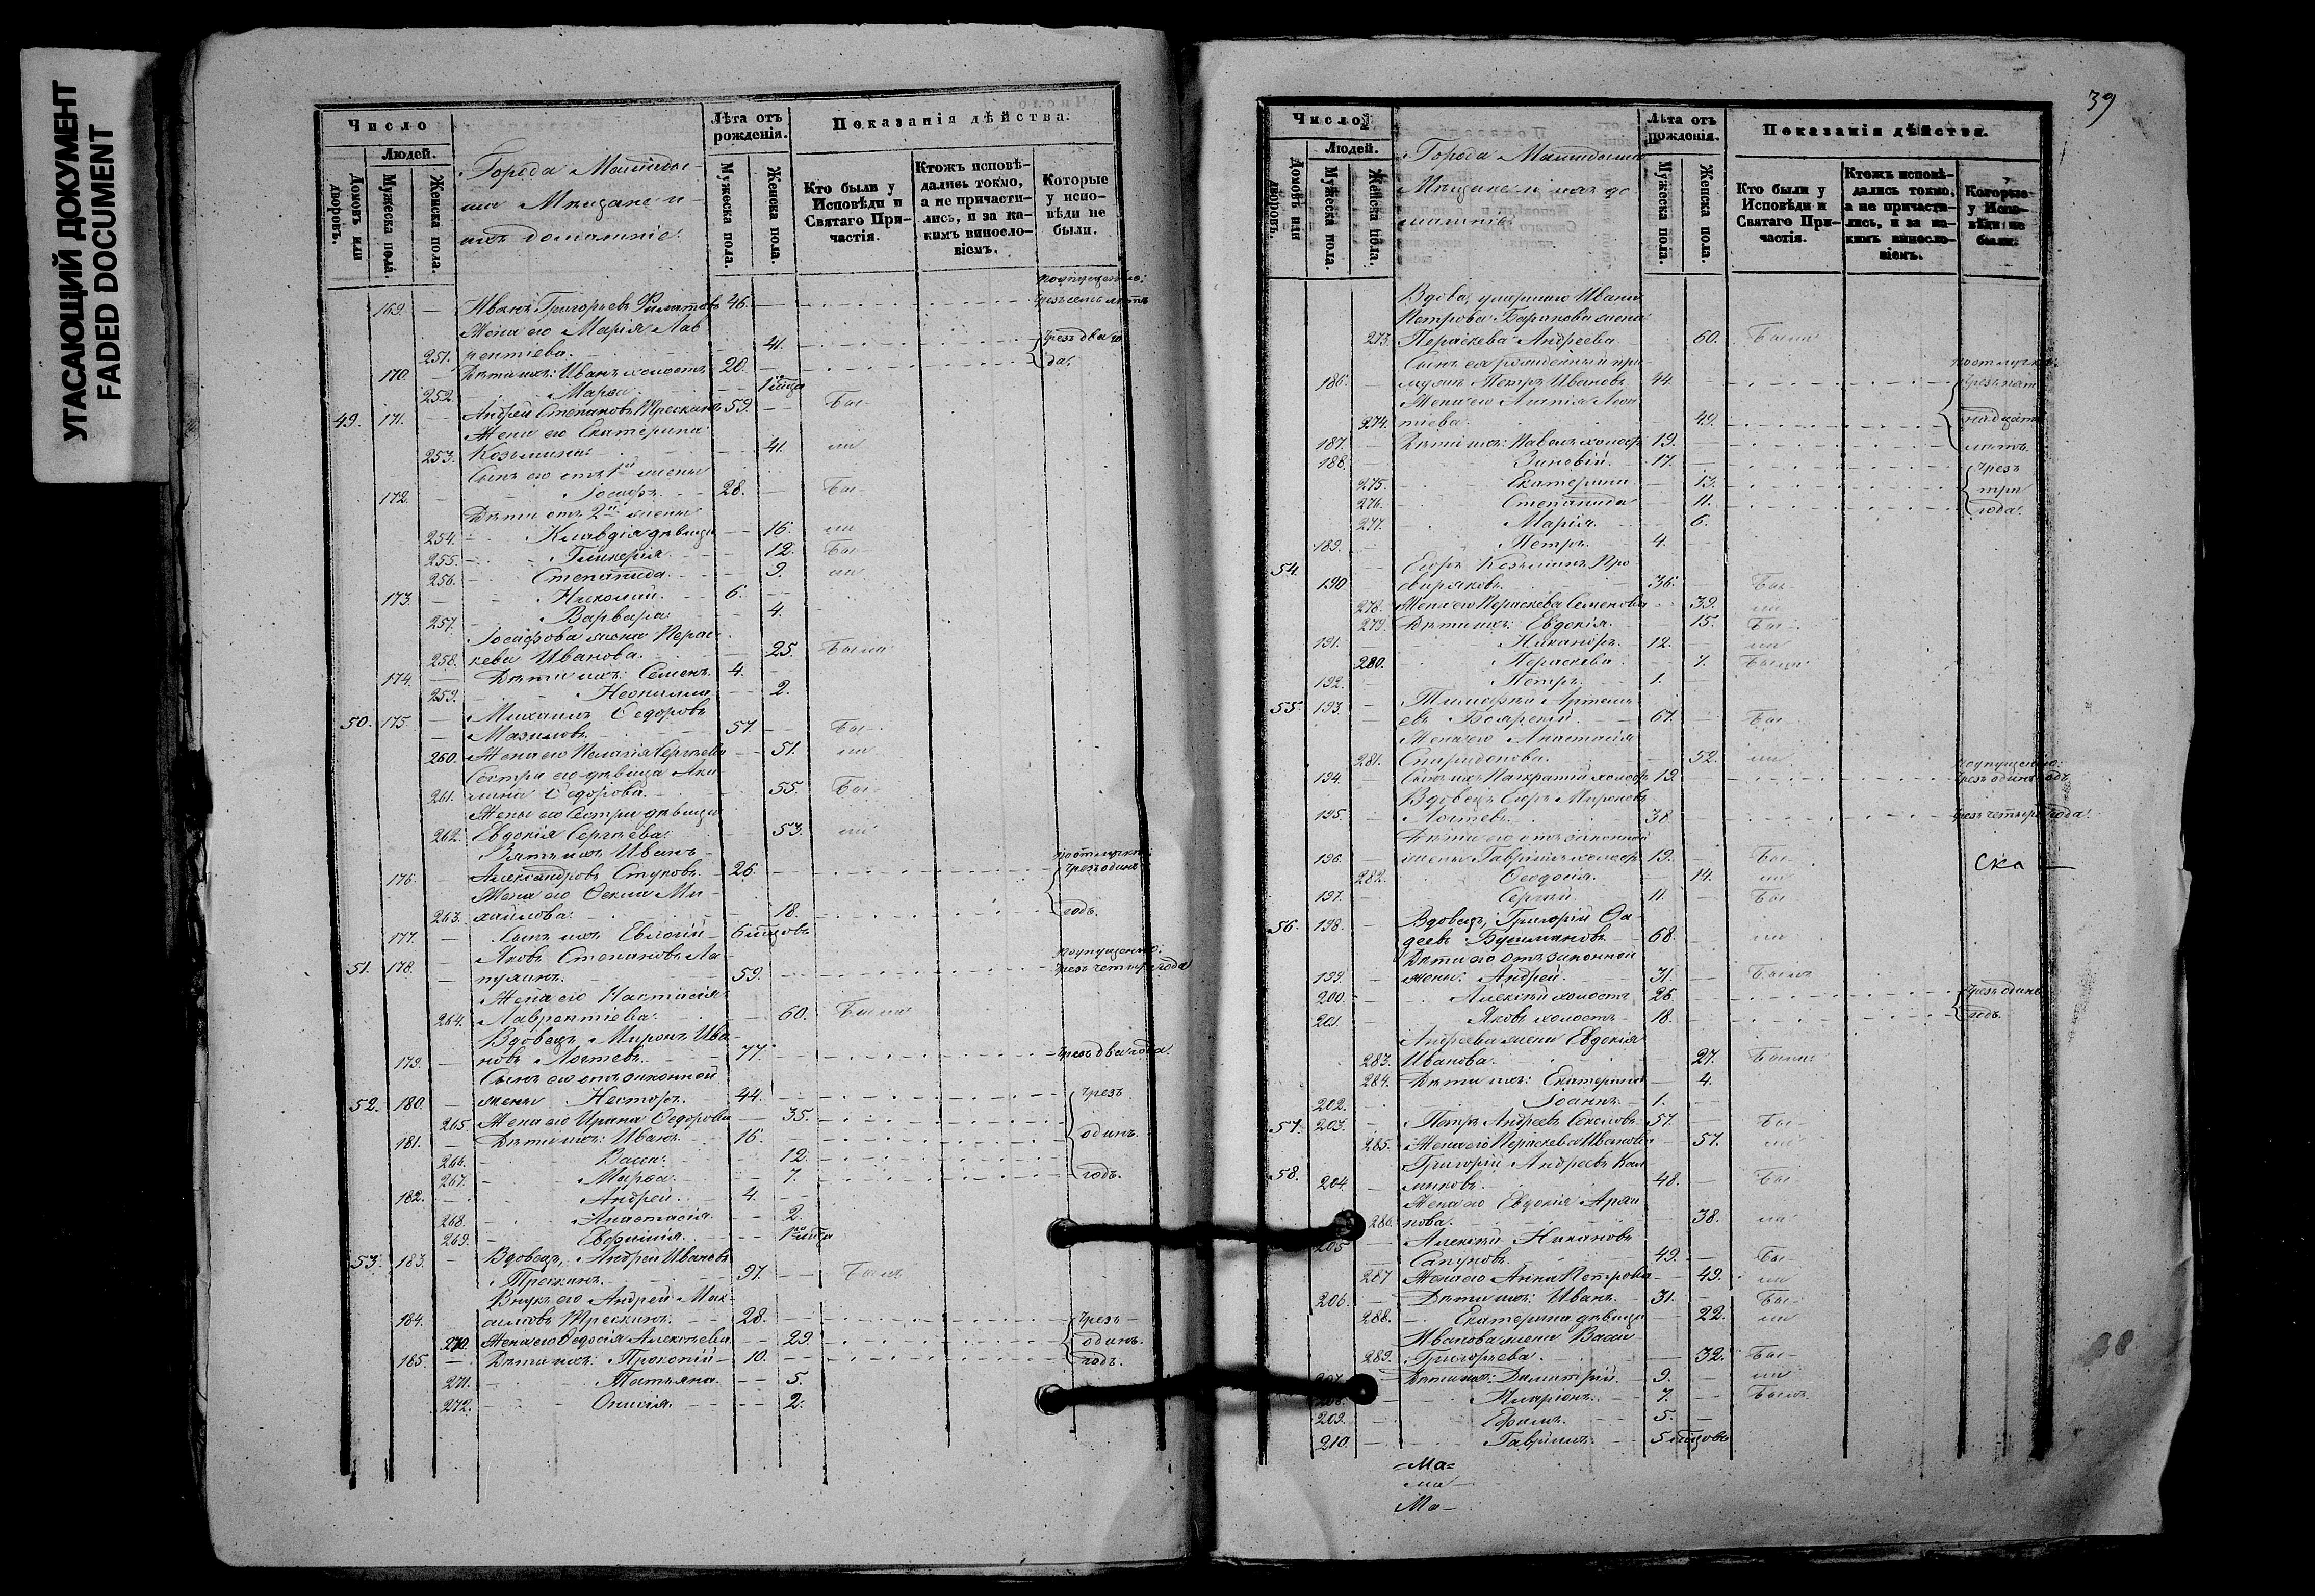 УГАСАЮЩИЙ ДОКУМЕНТ
FADED DOCUMENT
Число
Людей.
Домовъ или дворовъ.
Мужеска пола.
Женска пола.
Города
Мещане и
ихъ домашніе.
Лѣта отъ рожденія.
Мужеска пола.
Женска пола.
Показанія дѣйства.
Кто были у Исповѣди и Святаго Причастія.
Ктожъ исповѣдались токмо, а не причастились, и за какимъ винословіемъ.
Которые у исповѣди не были.
169. Иванъ Григорьевъ Филатовъ 46.
Жена его Марія Лав
251. рентіева. 41. Чрезъ два го
170. Дѣти ихъ: Иванъ холостъ 20. да.
252. Марѳа
49. 171. Андрей Степановъ Трескинъ 59. Бы-
Жена его Екатерина
253. Козьмина 41. ли
Сынъ его отъ 1й жены
172. Іосифъ. 28. Бы-
Дѣти отъ 2й жены
254. Клавдія дѣвица 16. ли
255. Гликерія 12. Бы-
256. Степанида. 9. ли
173. Николай. 6.
257. Варвара 4.
Іосифова жена Парас
258. кева Иванова. 25. Была
174. Дѣти ихъ: Семенъ. 4.
259. Неонилла 2.
50. 175. Михаилъ Ѳедоровъ
Мазиловъ. 57. Бы-
260. Жена его Пелагія Сергѣева 51. ли
Сестра его дѣвица Аки
261. лина Ѳедорова. 55. Бы-
Жены его Сестра дѣвица
262. Евдокія Сергѣева. 53. ли
Зять ихъ Иванъ
176. Александровъ Стуковъ. 26. Чрезъ одинъ
Жена его Ѳекла Ми
263. хайлова. 18. годъ.
177. Сынъ ихъ Евлогій
51. 178. Яковъ Степановъ Ла
пухинъ. 59. Чрезъ четыре года
Жена его Настасія
264. Лаврентіева. 60. Была
Вдовецъ Миронъ Ива
179. новъ Логтевъ. 77. Чрезъ два года.
Сынъ его отъ законной
52. 180. жены Несторъ. 44. Чрезъ
265. Жена его Ирина Ѳедорова 35.
181. Дѣти ихъ: Иванъ. 16. одинъ.
266. Васса. 12.
267. Марѳа. 7. годъ.
182. Андрей. 4.
268. Анастасія. 2.
269. Евфимія.
53. 183. Вдовецъ, Андрей Ивановъ
Трескинъ. 97. Былъ
Внукъ его Андрей Мак-
184. симовъ Трескинъ. 28. Чрезъ
270. Жена его Ѳедосія Алексѣева 29. одинъ.
185. Дѣти ихъ: Прокопій 10. годъ.
271. Татьяна. 5.
272. Онисія. 2.
39
Число
Людей.
Домовъ или дворовъ.
Мужеска пола.
Женска пола.
Города
Мещане и ихъ до
машніе
Лѣта отъ рожденія.
Мужеска пола.
Женска пола.
Показанія дѣйства.
Кто были у Исповѣди и Святаго Причастія.
Ктожъ исповѣдались токмо, а не причастились, и за какимъ винословіемъ.
Которые у Исповѣди не были.
Вдова, умершаго Ивана
Петрова Баранова жена
273. Параскева Андреева 60. Была
186. Петръ Ивановъ 44. Чрезъ пят
Жена его Агапія Леон
274. тіева 49. надцать
187. Дѣти ихъ: Павелъ холостъ 19. лѣтъ.
188. Зиновій. 17. Чрезъ
275. Екатерина 13. три
276. Степанида 11. года.
277. Марія. 6.
189. Петръ. 4.
54. Егоръ Козьминъ Про
190 свиряковъ. 36. Бы-
278. Жена его Параскева Семенова 39. ли
279. Дѣти ихъ: Евдокія. 15. Бы-
191. Никаноръ. 12. ли
280. Параскева 7. Была
192. Петръ. 1.
55. 193. Тимофей Артемь
евъ Боярскій. 67. Бы-
Жена его Анастасія
281. Спиридонова. 52. ли
194. Сынъ ихъ Панкратій холостъ 19. Чрезъ одинъ годъ
Вдовецъ Егоръ Мироновъ
195. Логтевъ. 38. Чрезъ четыре года.
Дѣти его отъ законной
196. жены Гавріилъ холостъ 19. Бы-
282. Ѳеодосія. 14. ли
197. Сергій. 11. Бы-
Ска
56. 198. Вдовецъ, Григорій Ѳа-
деевъ Бушмановъ 68. ли
Дѣти его отъ законной
199. жены: Андрей. 31. Былъ
200. Алексѣй холостъ 26. Чрезъ одинъ
201. Яковъ холостъ 18. годъ.
Андреева жена Евдокія
283. Иванова. 27. Была
284. Дѣти ихъ: Екатерина 4.
202. Іоаннъ. 1.
57. 203. Петръ Андреевъ Соколовъ 57. Бы-
285. Жена его Параскева Иванова 57. ли
58. Григорій Андреевъ Кал
204. мыковъ. 48. Бы-
Жена его Евдокія
286. нова. 38. ли
205 Алексѣй
Сапуновъ. 49. Бы-
287 Жена его Анна Петрова 49. ли
206. Дѣти ихъ: Иванъ. 31. Бы-
288. Екатерина дѣвица 22. ли
Иванова жена Васса
289. Григорьева. 32. Бы-
Дѣти ихъ: Димитрій. 9. ли
Иларіонъ. 7. Былъ
209. Ефимъ. 5.
210 Гавріилъ.
=Ма=
ма
Ма-